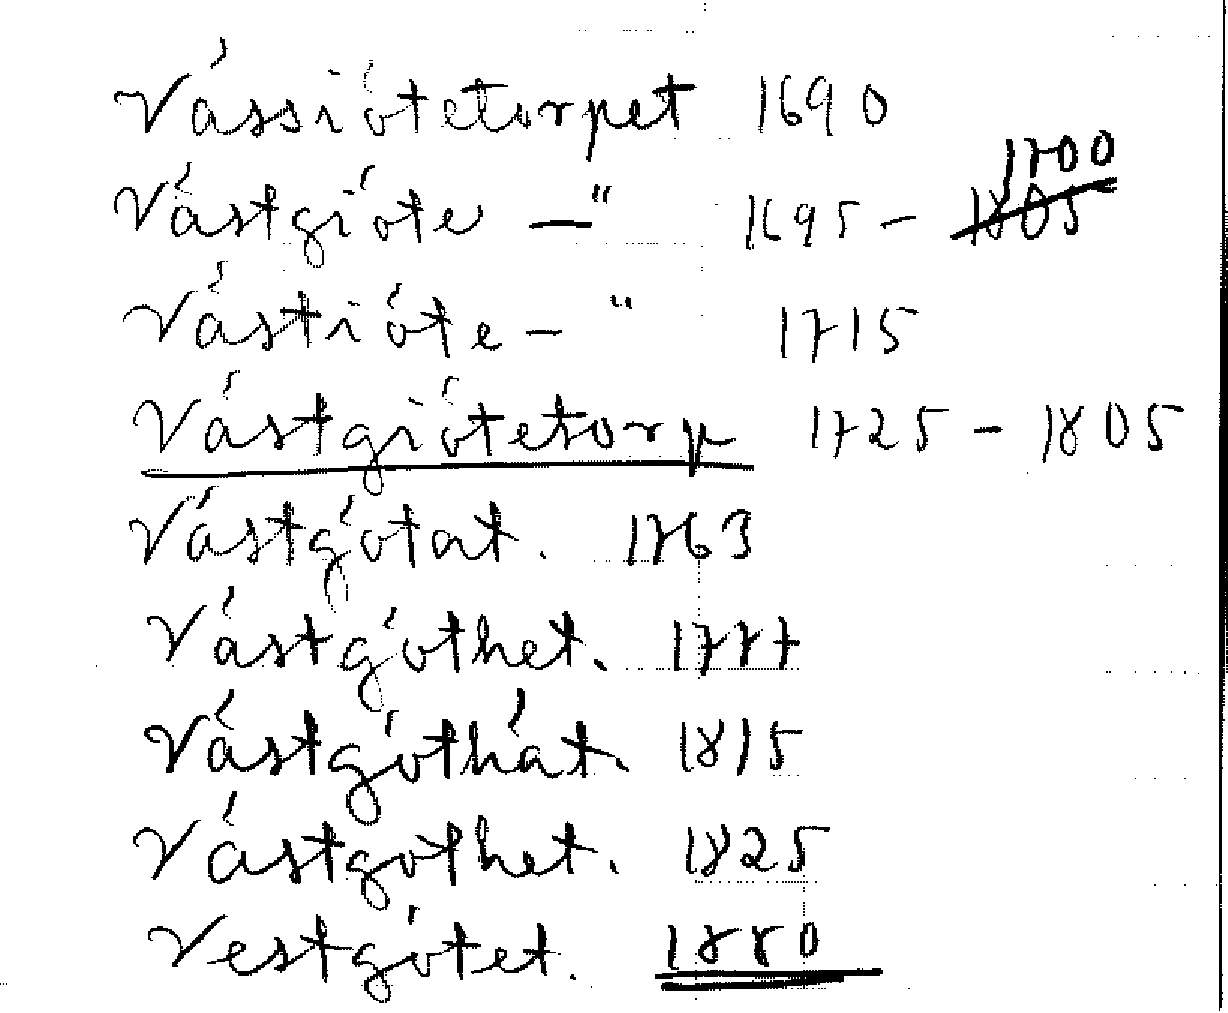 Vässiötetorpet 1690
Västgiöte —" 1695 - 1805 1700
Västiöte - " 1715
Västgiötetorp 1725 - 1805
Västgötat. 1763
Västgöthet. 1777
Västgöthät. 1815
Västgöthet. 1825
Vestgötet. 1880